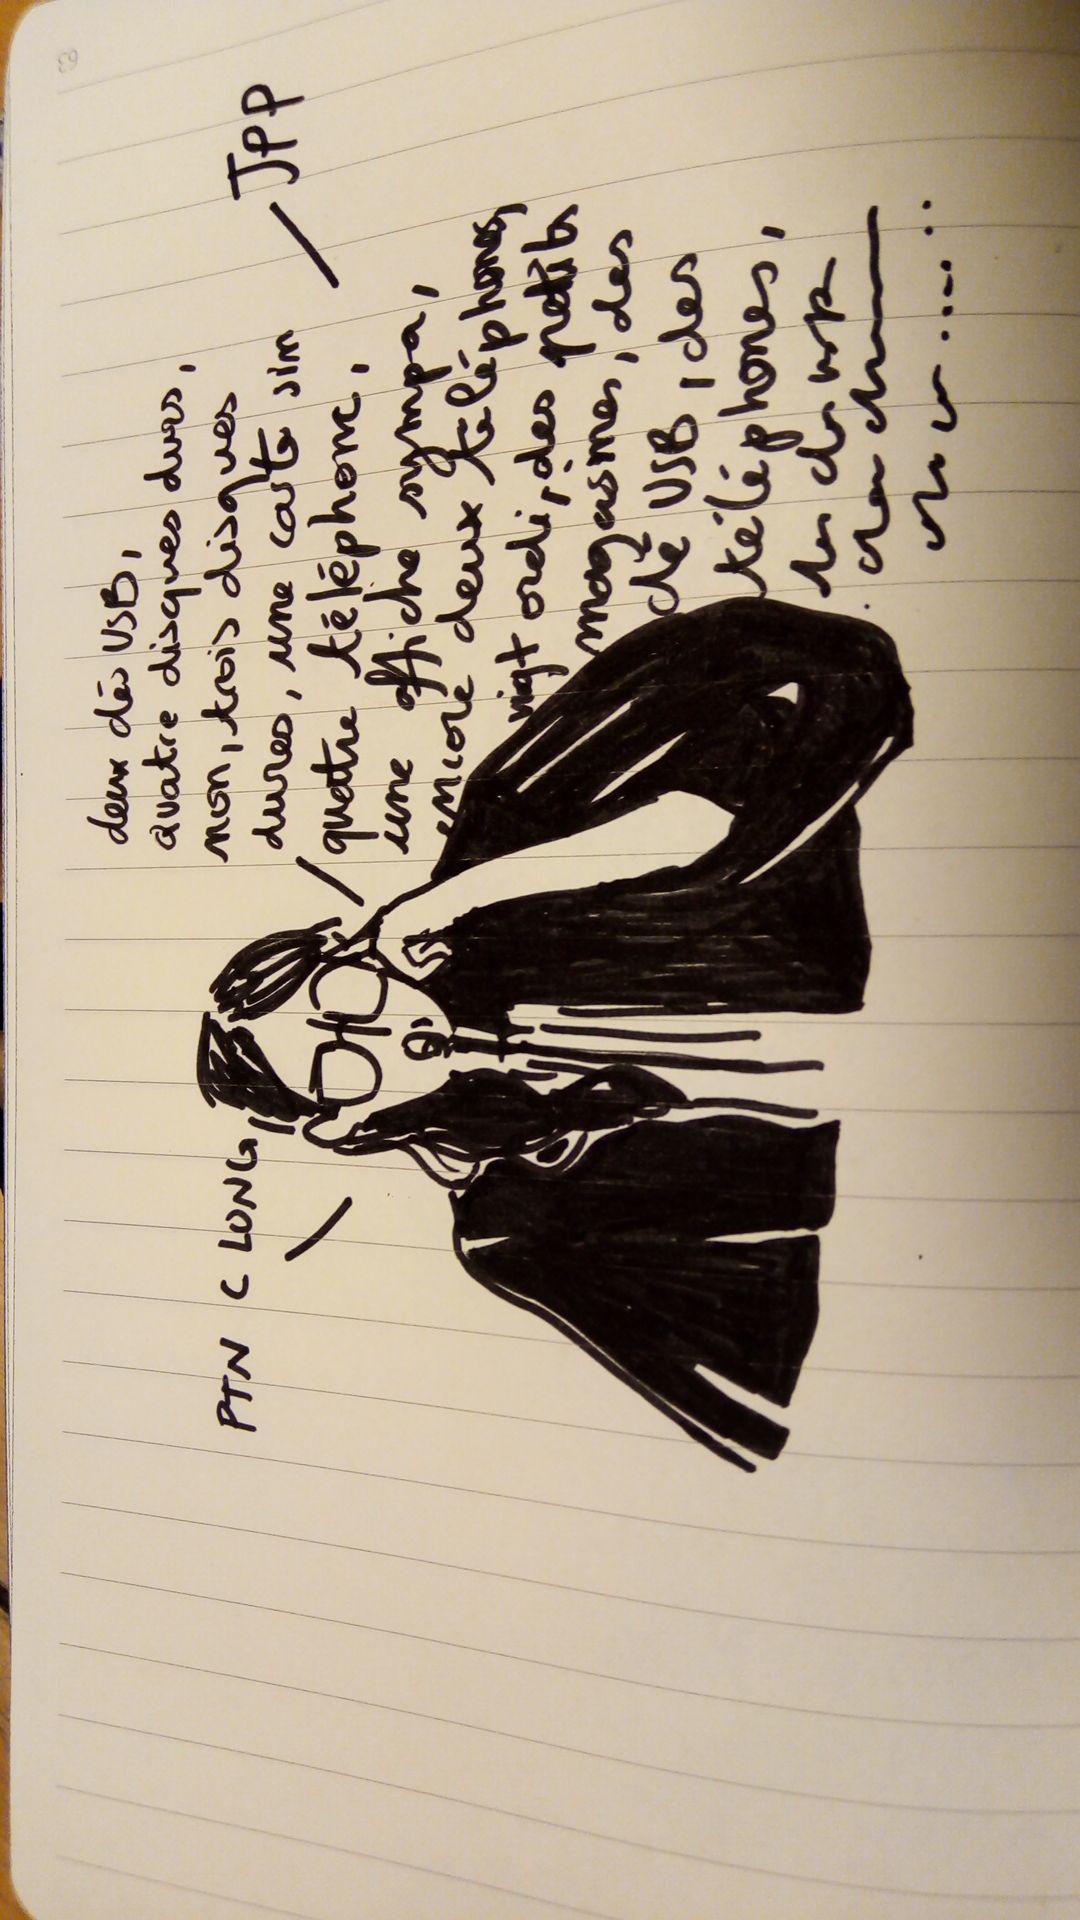 deux dés USB,
quatre disques durs,
non, trois disques
dures, une carte sim
quatre téléphone,
une affiche sympa,
encore deux téléphones,
vigt ordi, des petits
magasines, des
dé USB, des
téléphones,
JPP
PTN C LONG,